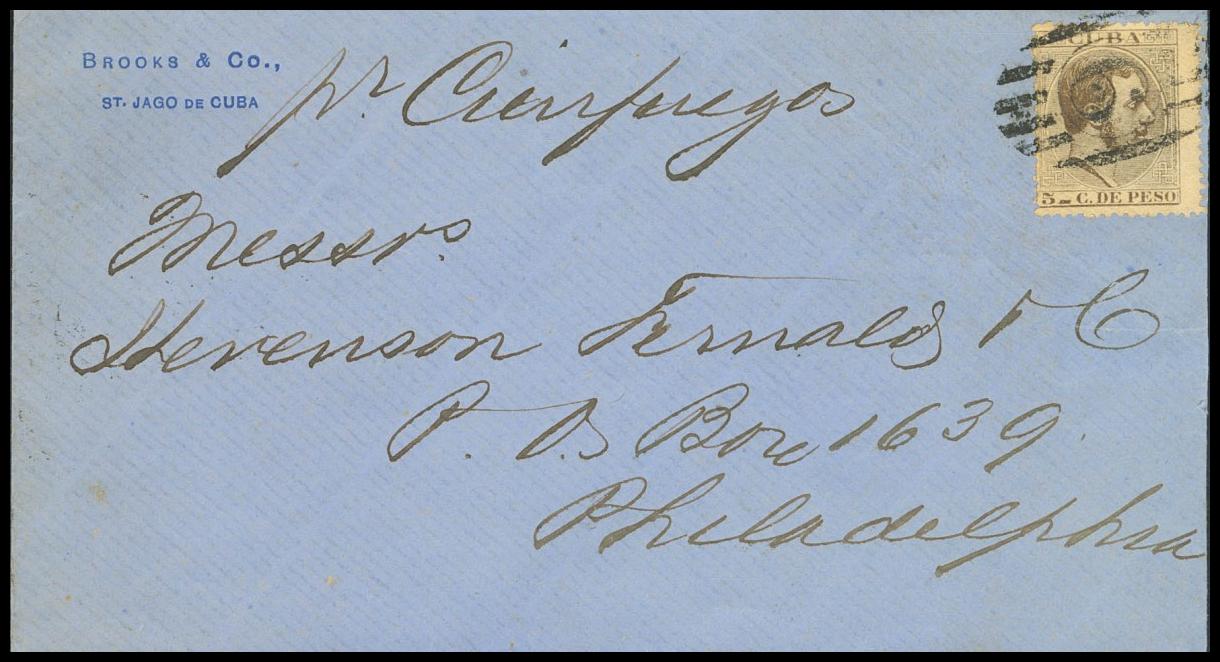 BROOKS & CO.,
ST. JAGO DE CUBA
pr. Cienfuegos
CUBA
5 C. DE PESO
Messrs
Stevenson Fernald & C
P. O. Box 1639.
Philadelphia